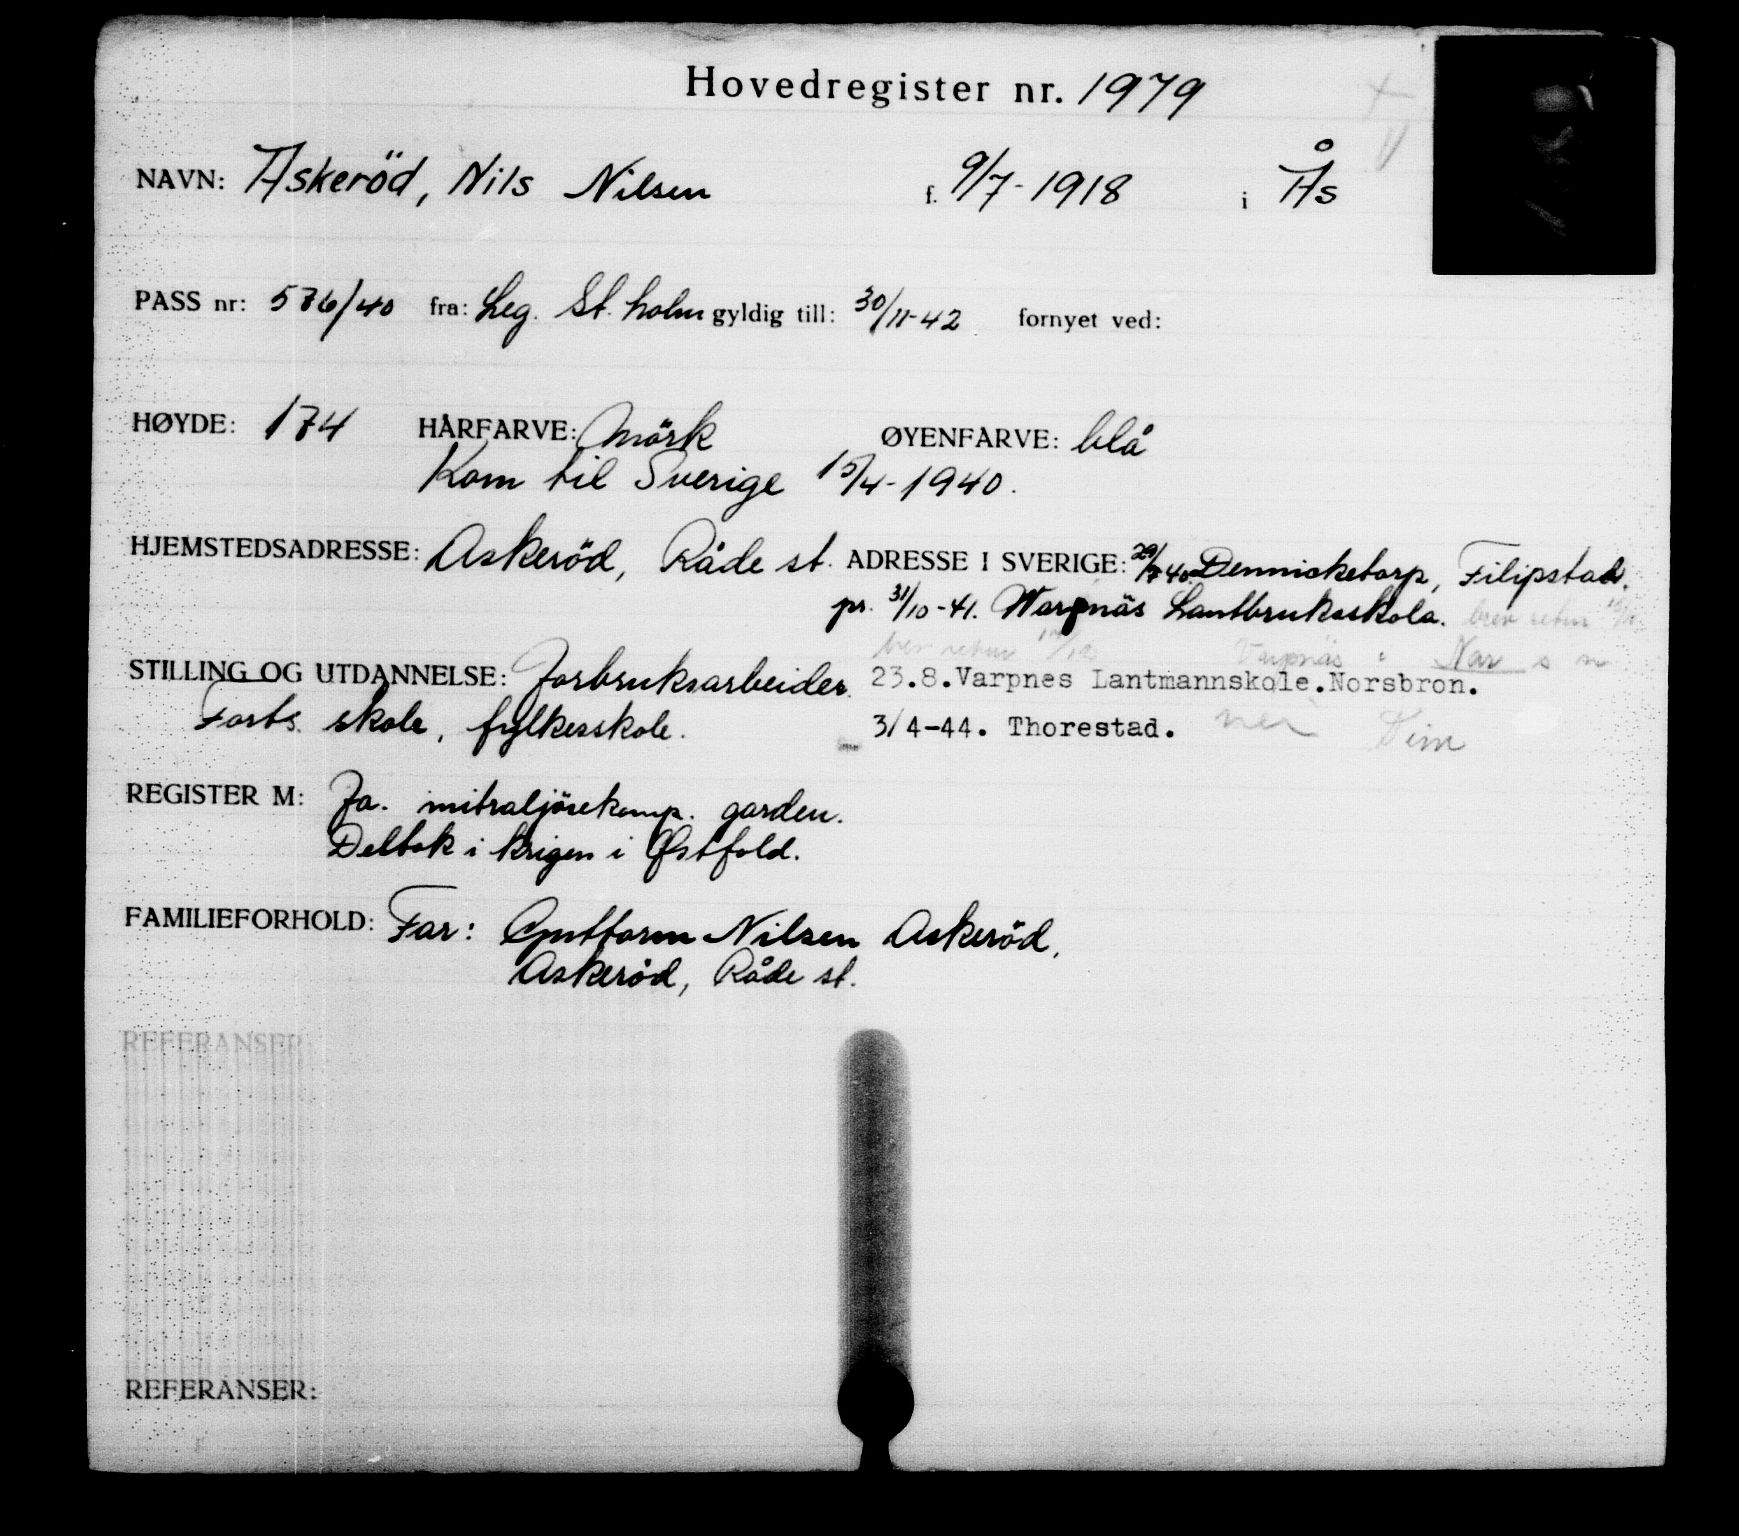 Hovedregister nr. 1979
NAVN: Askeröd, Nils Nilsen f. 9/7-1918 i Ås
PASS nr: 576/40 fra: Leg. St. holm gyldig till: 30/11-42 fornyet ved:
HØYDE: 174 HÅRFARVE: Mörk ØYENFARVE: blå
Kom til Sverige 15/4-1940.
HJEMSTEDSADRESSE: Askeröd, Råde st. ADRESSE I SVERIGE: 29/7 40. Dennicketorp, Filipstad.
pr. 31/10-41. Warpnäs Lantbruksskola. brev retur
brev retur
STILLING OG UTDANNELSE: Jorbruksarbeider. 23.8.Varpnes Lantmannskole.Norsbron.
Forts. skole, fylkesskole. 3/4-44. Thorestad.
REGISTER M: Ja. mitraljösekomp. garden.
Deltok i krigen i Østfold.
FAMILIEFORHOLD: Far: Guttorm Nilsen Askeröd,
Askeröd, Råde st.
REFERANSER
REFERANSER: